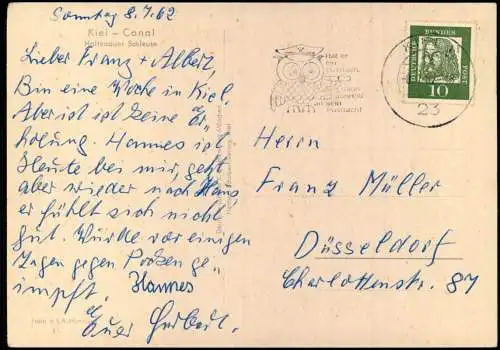 Sonntag 8.7.62
Kiel – Canal
Holtenauer Schleuse
Lieber Franz + Albert,
Bin eine Woche in Kiel.
Aber ist ist keine Er-
holung. Hannes ist
Heute bei mir, geht
aber wieder nach Haus
er fühlt sich nicht
gut. Würde vor einigen
Tagen gegen Pocken ge-
impft. Hannes
Euer Herbert.
DEUTSCHE BUNDESPOST
10
23
Herrn
Franz Müller
Düsseldorf
Charlottenstr. 87